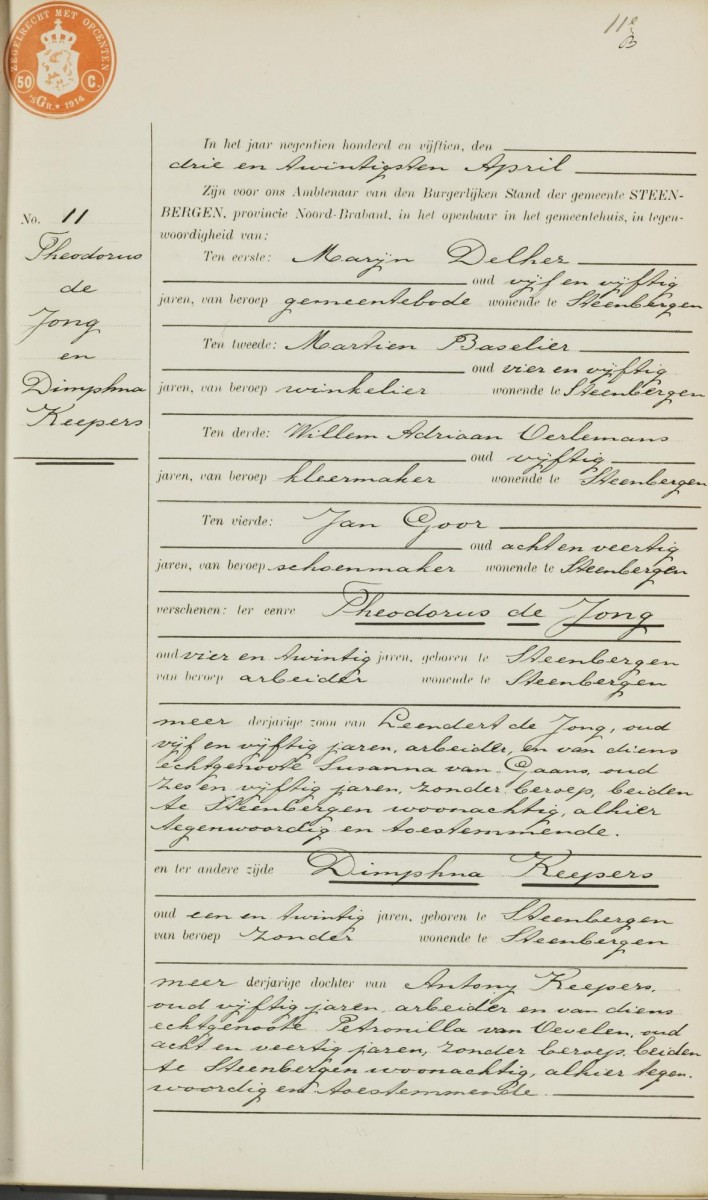 ZEGELRECHT MET OPCENTEN
50 C.
'sGR. 1914
11e
B
In het jaar negentien honderd en vijftien, den
drie en twintigsten April
Zijn voor ons Ambtenaar van den Burgerlijken Stand der gemeente STEEN-
BERGEN, provincie Noord-Brabant, in het openbaar in het gemeentehuis, in tegen-
woordigheid van:
No. 11
Theodorus
de
Jong
en
Dimphna
Keepers
Ten eerste: Marijn Delher
oud vijf en vijftig
jaren, van beroep gemeentebode wonende te Steenbergen
Ten tweede: Martien Baselier
oud vier en vijftig
jaren, van beroep winkelier wonende te Steenbergen
Ten derde: Willem Adriaan Verlemans
oud vijftig
jaren, van beroep kleermaker wonende te Steenbergen
Ten vierde: Jan Goor
oud acht en veertig
jaren, van beroep schoenmaker wonende te Steenbergen
verschenen: ter eenre Theodorus de Jong
oud vier en twintig jaren, geboren te Steenbergen
van beroep arbeider wonende te Steenbergen
meer derjarige zoon van Leendert de Jong, oud
vijf en vijftig jaren, arbeider, en van diens
echtgenoote Susanna van Gaans, oud
zes en vijftig jaren, zonder beroep, beiden
te Steenbergen woonachtig, alhier
tegenwoordig en toestemmende.
en ter andere zijde Dimphna Keepers
oud een en twintig jaren, geboren te Steenbergen
van beroep zonder wonende te Steenbergen
meer derjarige dochter van Antony Keepers,
oud vijftig jaren, arbeider en van diens
echtgenoote Petronilla van Oevelen, oud
acht en veertig jaren, zonder beroep, beiden
te Steenbergen woonachtig, alhier tegen-
woordig en toestemmende.